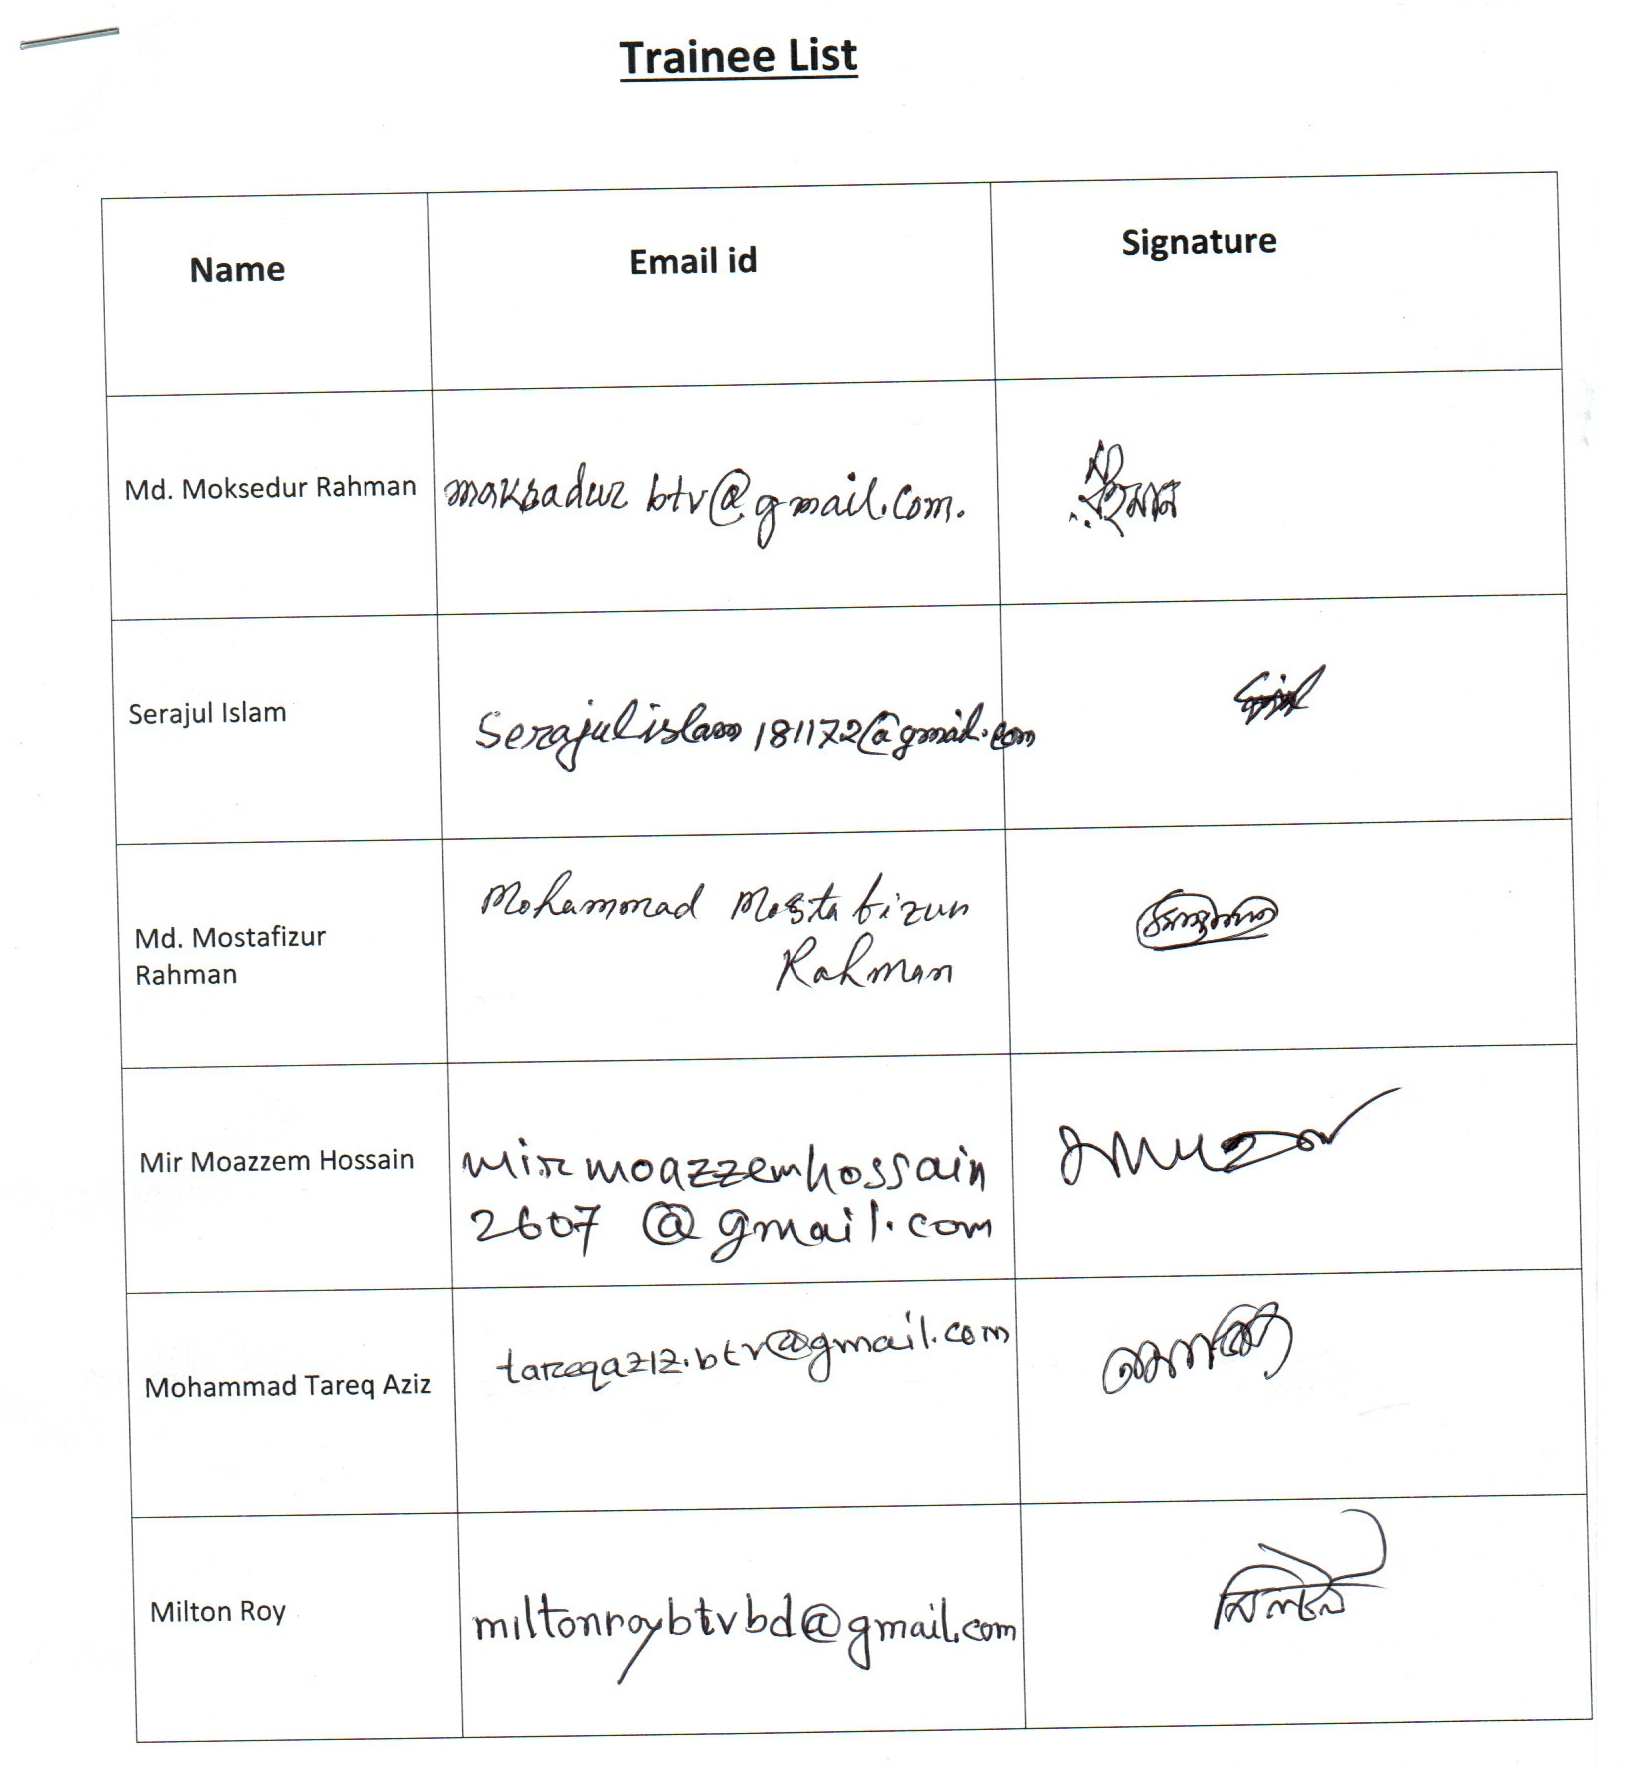 Trainee List
Name Email id Signature
Md. Moksedur Rahman maksadur btv@gmail.com.
Serajul Islam Serajulislam 181172@gmail.com
Md. Mostafizur
Rahman
Mohammad Mostafizur
Rahman
Mir Moazzem Hossain
mirmoazzemhossain
2607 @gmail.com
Mohammad Tareq Aziz tareqaziz.btv@gmail.com
Milton Roy miltonroybtvbd@gmail.com মিল্টন